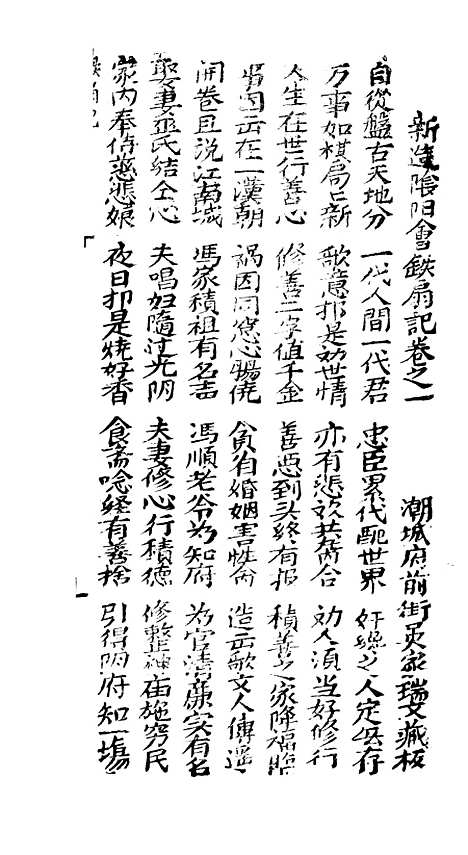 新造陰陽會鉄扇記卷之一　潮城府前街吳家瑞文藏板
自從盤古天地分　一代人間一代君　忠臣累代馳世界　奸雄之人定無存
万事如棋局占新　歌意却是劝世情　亦有悲欢共离合　劝人須当好修行
人生在世行善心　修善二字值千金　善惡到头終有报　積善之家降福臨
出在一漢朝　禍因同窓心　貪自婚姻害性命　造出歌文人傳遥
開卷且説江南城　馮家積祖有名声　馮順老爷为知府　为官清廉实有名
娶妻孟氏結仝心　夫唱妇隨过光阴　夫妻修心行積德　修整神庙施穷民
家内奉侍慈悲娘　夜日却是烧好香　食斋唸経有善捨　引得阴府知一塲